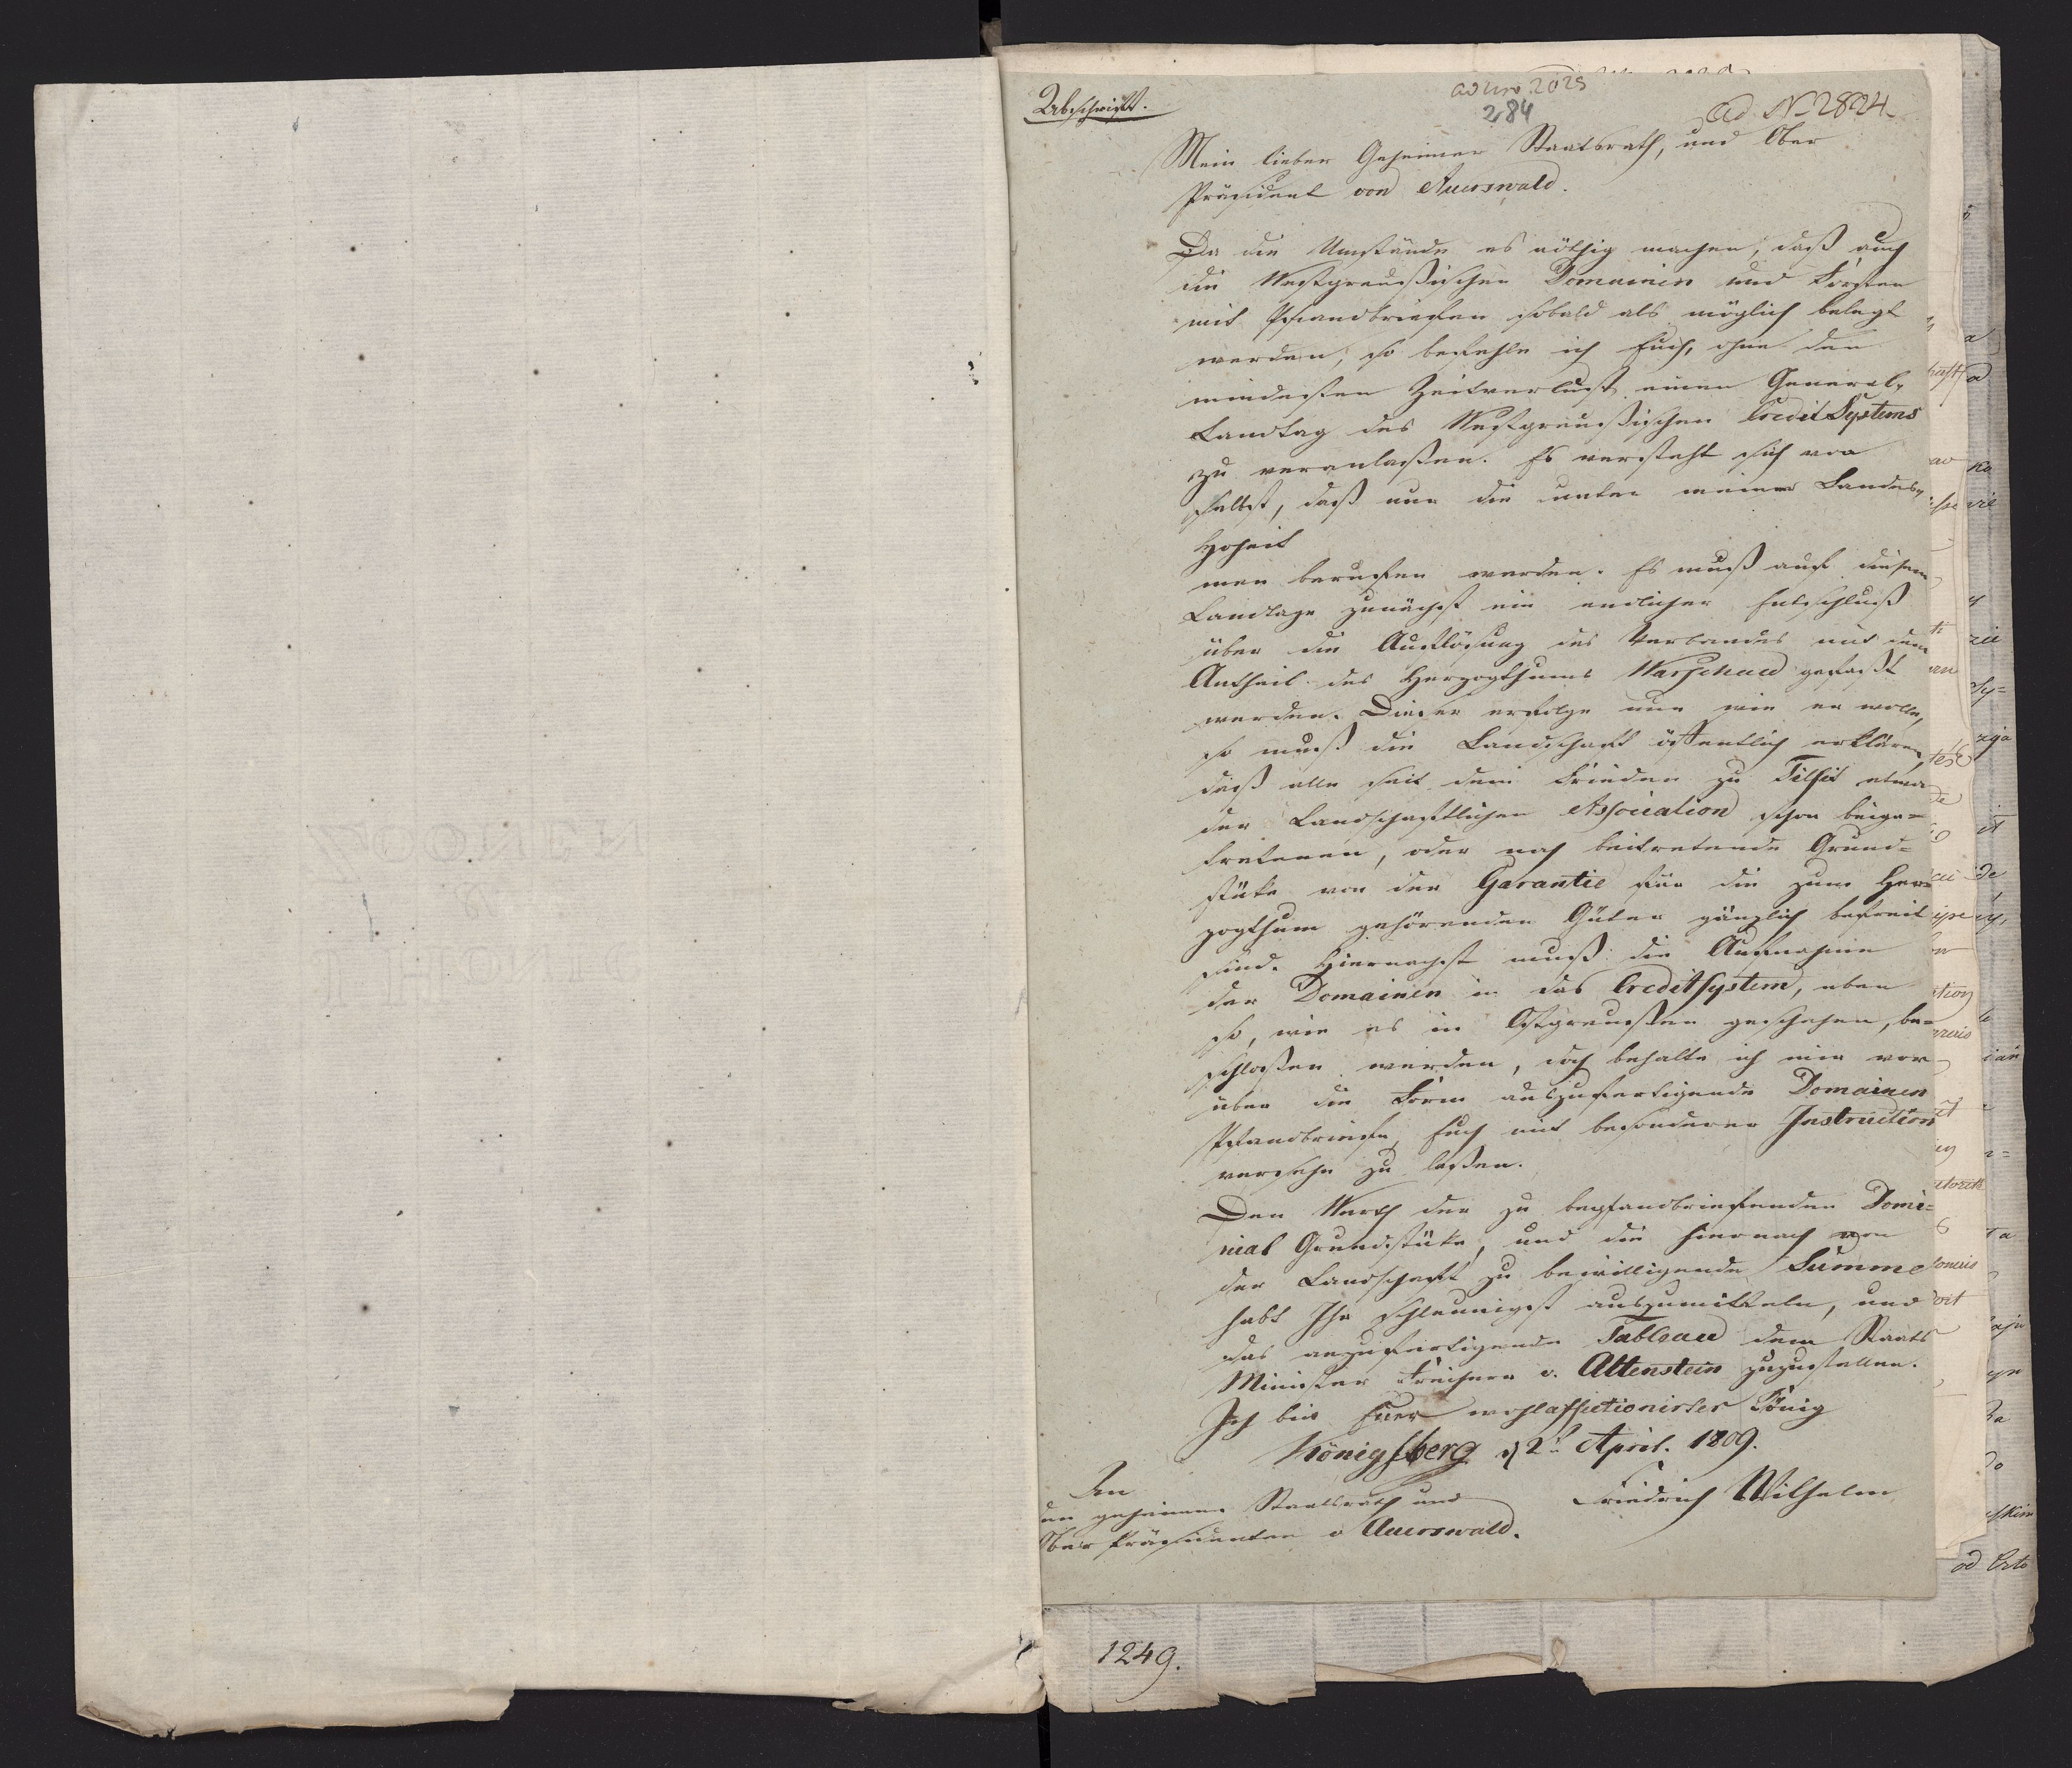 Abschrift.
ad nro 2025
284
ad N. 2824
Mein lieber Geheimer Staatsrath, und Ober
Präsident von Auerswald.
Da die Umstände es nöthig machen, daß auch
die Westpreußischen Domainen und Forsten
mit Pfandbriefen sobald als möglich belegt
werden, so befehle ich Euch, ohne den
mindesten Zeitverlust einen General-
Landtag des Westpreußischen Credit Systems
zu veranlaßen. Es versteht sich von
selbst, daß nur die unter meiner Landes-
Hoheit
men berufen werden. Es muß auf diesem
Landtage zunächst ein endlicher Entschluß
über die Auflösung des Verbandes mit dem
Antheil des Herzogthums Warschau gefaßt
werden. Dieser erfolge nun wie er wolle,
so muß die Landschaft öffentlich erklären,
daß alle seit dem Frieden zu Tilsit etwa
der Landschaftlichen Association schon beige=
tretenen, oder noch beitretende Grund=
stüke von der Garantie für die zum Her=
zogthum gehörenden Güter gänzlich befreit
sind. Hiernächst muß die Aufnahme
der Domainen in das Creditsystem, eben
so, wie es in Ostpreußen geschehen, be=
schloßen werden, doch behalte ich mir vor
über die Form auszufertigende Domainen
Pfandbriefe, Euch mit besonderer Instruction
versehn zu laßen.
Den Werth der zu bepfandbriefenden Domi=
nial Grundstüke, und die hiernach von
der Landschaft zu bewilligende Summe
habt Ihr schleunigst auszumitteln, und
das anzufertigende Tableau dem Staats
Minister Freiherr v. Altenstein zuzustellen.
Ich bin Euer wohlaffectionirter König
Königsberg d 2t April. 1809.
Friedrich Wilhelm
An
den geheimen Staatsrath und
Ober Präsidenten v Auerswald.
1249.